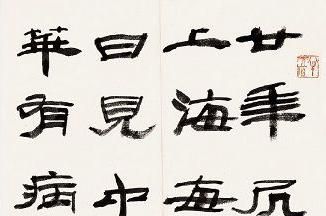 廿年居
上海每
日見中
華有病